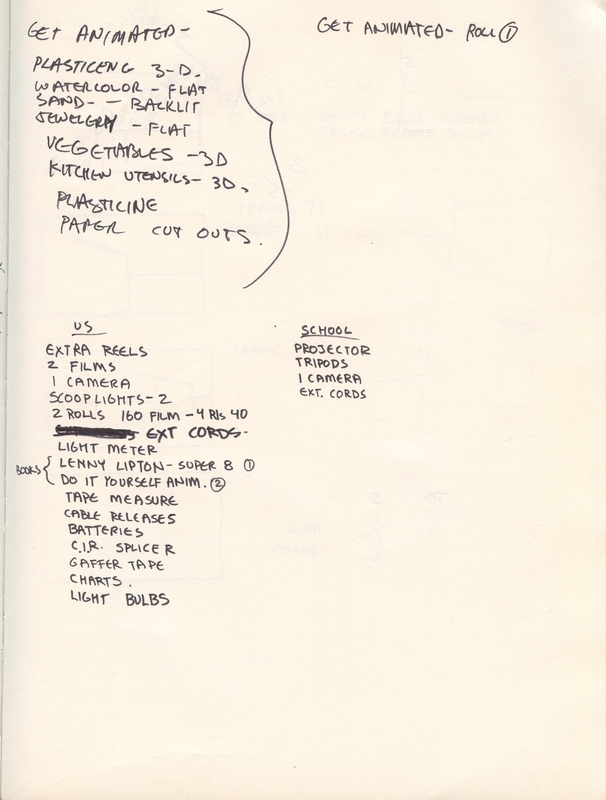 GET ANIMATED-
PLASTICENG 3-D.
WATERCOLOR - FLAT
SAND- - BACKLIT
JEWELERY - FLAT
VEGETABLES - 3D
KITCHEN UTENSILS- 3D.
PLASTICINE
PAPER CUT OUTS.
GET ANIMATED- ROLL ①
US
EXTRA REELS
2 FILMS
1 CAMERA
SCOOPLIGHTS- 2
2 ROLLS 160 FILM - 4 Rls 40
EXT CORDS-
LIGHT METER
BOOKS { LENNY LIPTON- SUPER 8 ①
DO IT YOURSELF ANIM. ②
TAPE MEASURE
CABLE RELEASES
BATTERIES
C.I.R. SPLICER
GAFFER TAPE
CHARTS.
LIGHT BULBS
SCHOOL
PROJECTOR
TRIPODS
1 CAMERA
EXT. CORDS